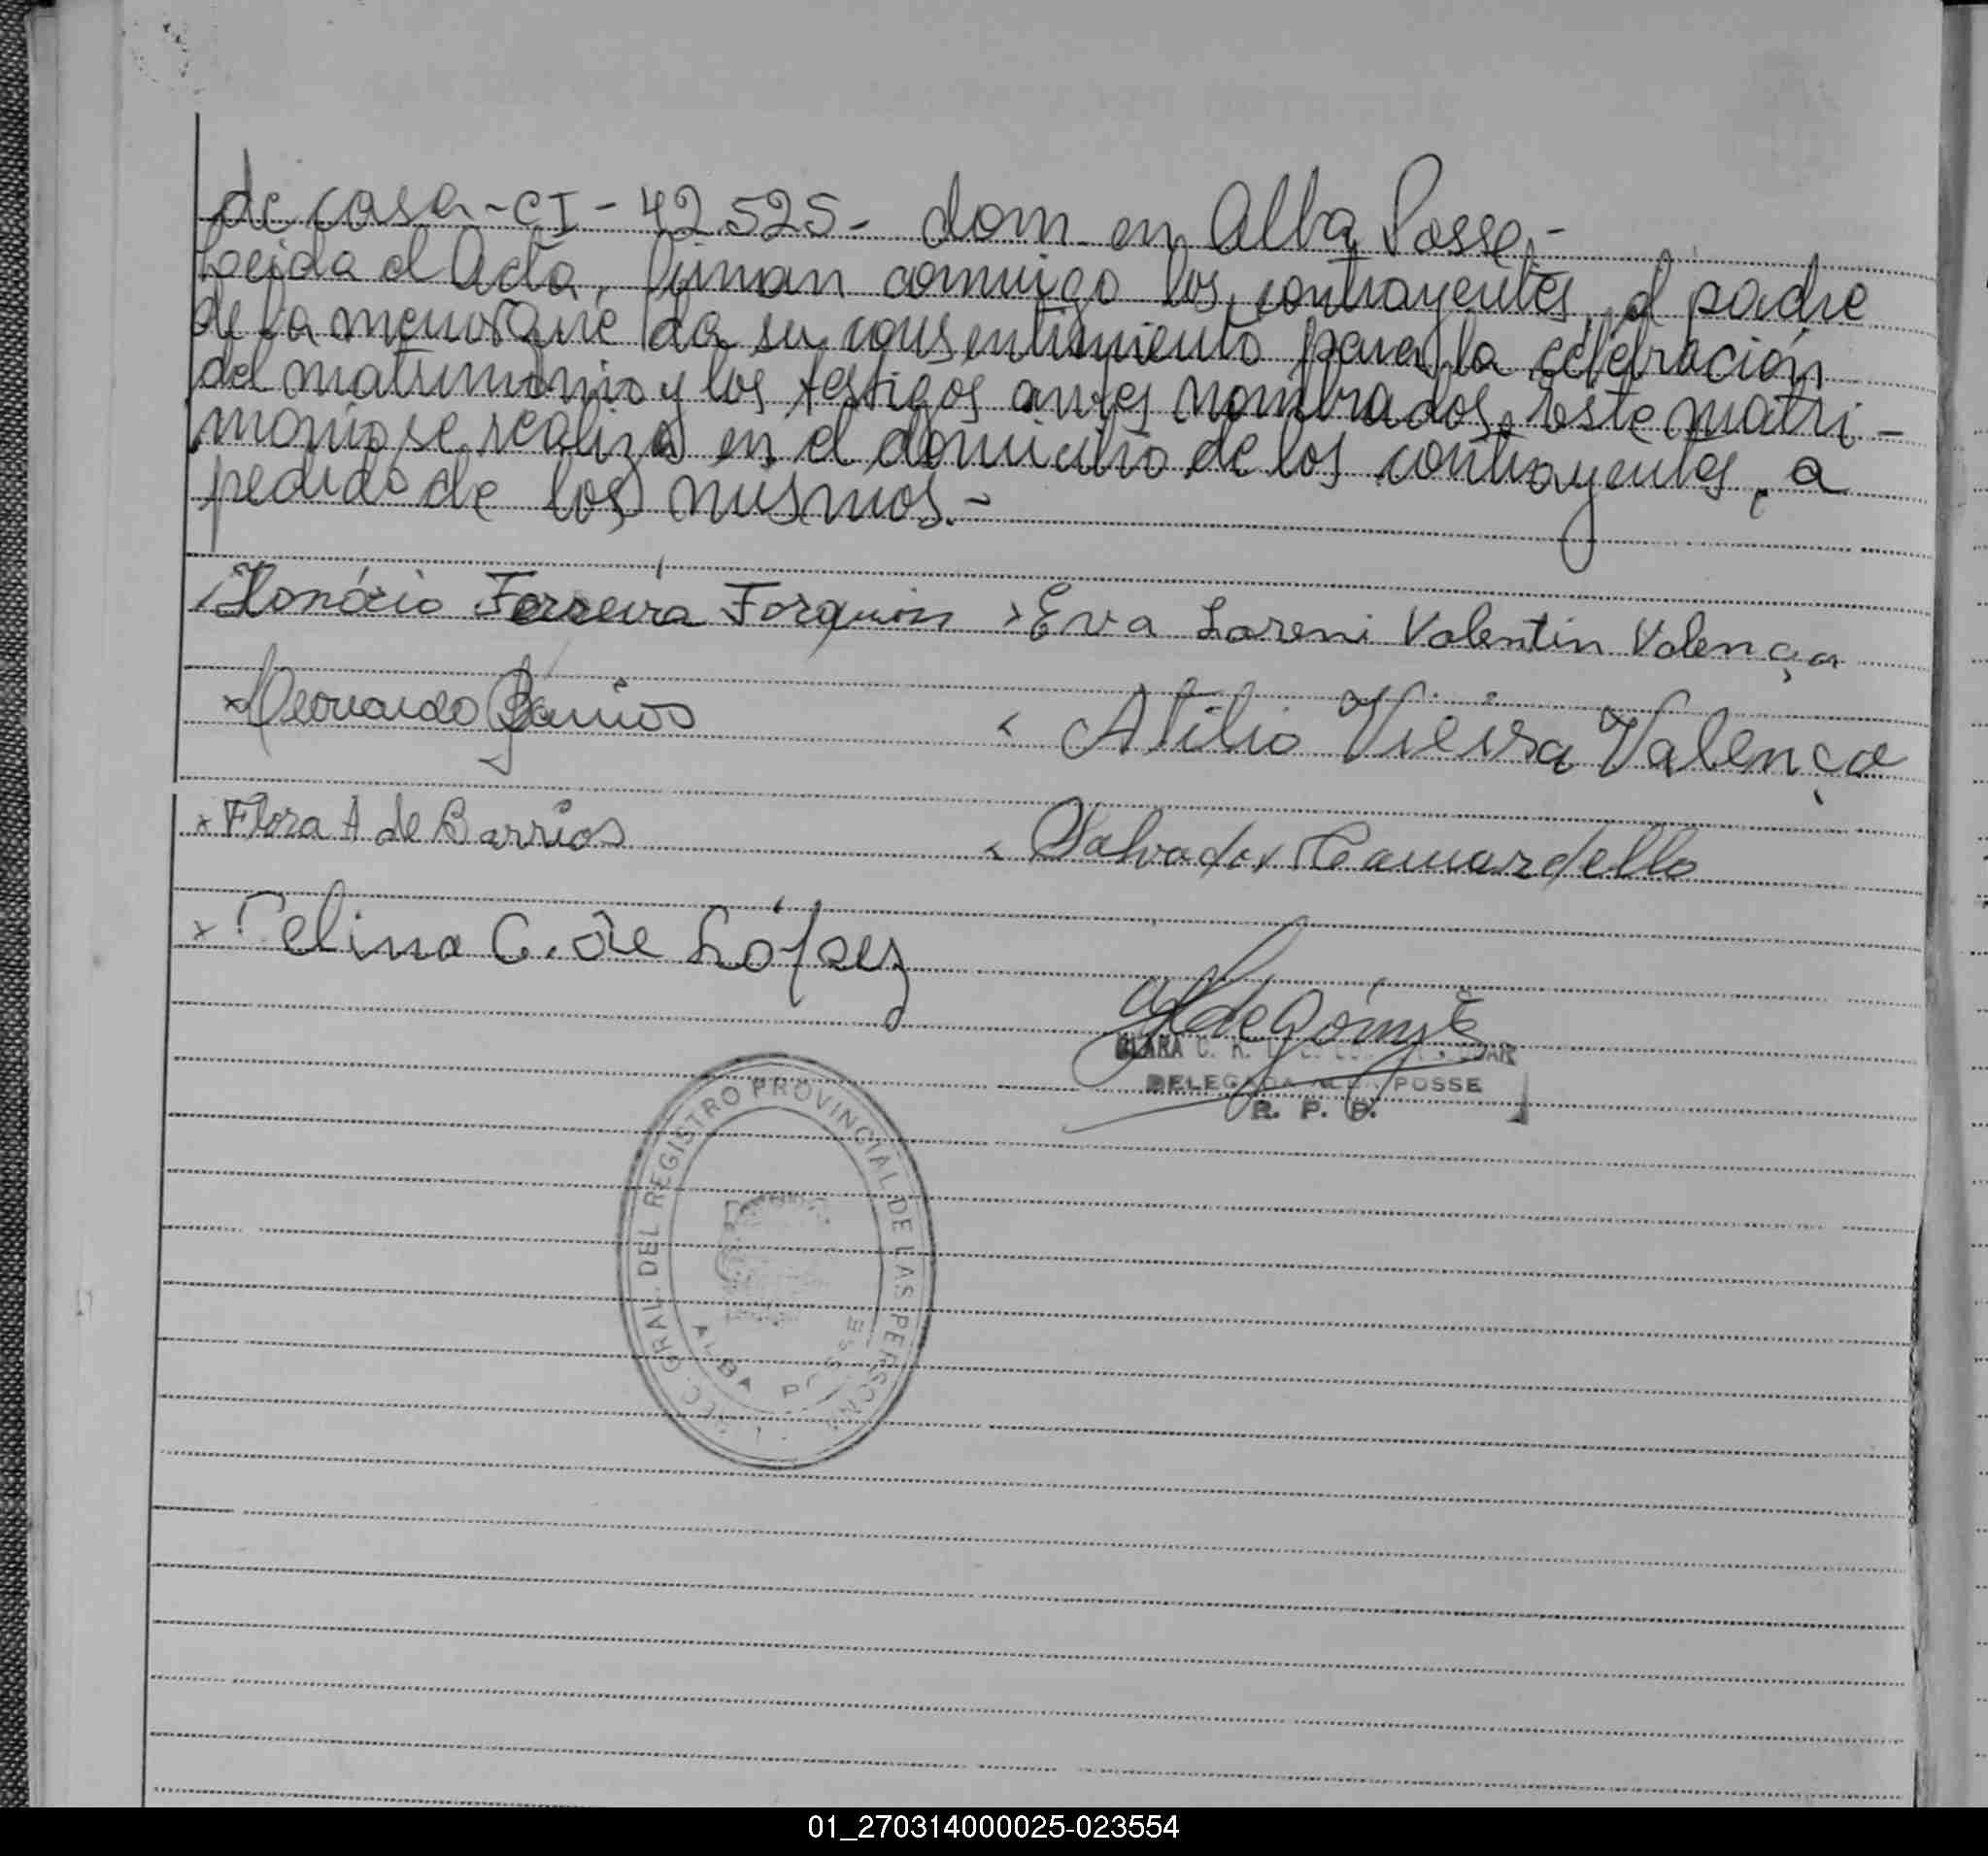 de casa-CI-42.525- dom en Alba Posse.-
Leida el Acta, firman conmigo los contrayentes, el padre
de la menor que da su consentimiento para la celebración
del matrimonio y los testigos antes nombrados, este matri-
monio se realiza en el domicilio de los contrayentes, a
pedido de los mismos.-
Honório Ferreira x Eva Loreni Valentin Valença
x Barrios x Atilio Vieira Valença
x Flora A de Barrios x Salvador Camardello
x Celina C. de López
de Gómez
CLARA C.
DELEGADA ALBA POSSE
R. P. P.
GRAL. DEL REGISTRO PROVINCIAL DE LAS PERSONAS
ALBA POSSE
01_270314000025-023554